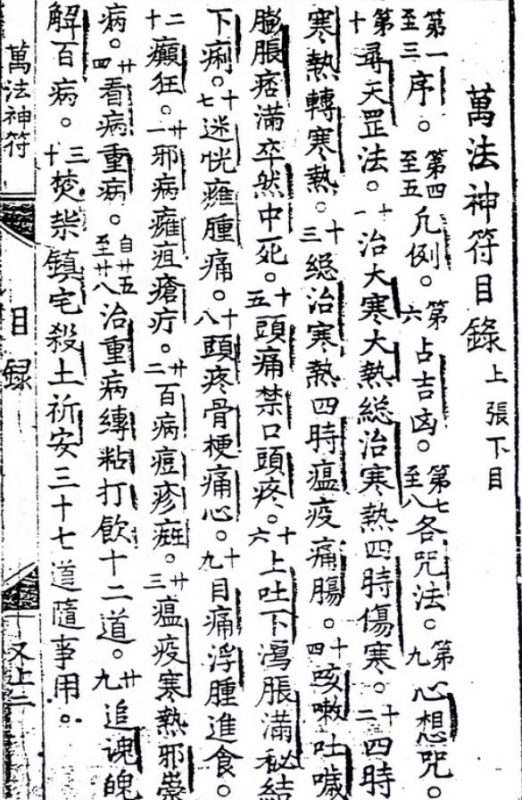 萬法神符目錄上張下目
第一至三序。第四至五凢例。第六占吉凶。第七至八各咒法。第九心想咒。
第十尋天罡法。十一治大寒大熱総治寒熱四時傷寒。十二四時
寒熱轉寒熱。十三総治寒熱四時瘟疫痛腸。十四咳嗽吐噦
膨脹痞滿卒然中死。十五頭痛禁口頭疼。十六上吐下瀉脹滿秘結
下痢。十七迷恍癰腫痛。十八頭疼骨梗痛心。十九目痛浮腫進食。
二十癲狂。廿一邪病癰疽瘡疔。廿二百病痘疹。廿三瘟疫寒熱邪祟
病。廿四看病重病。自廿五至廿八治重病縳粘打飲十二道。廿九追魂魄
解百病。三十焚柴鎮宅殺土祈安三十七道隨事用。
萬法神符 目録 又上二